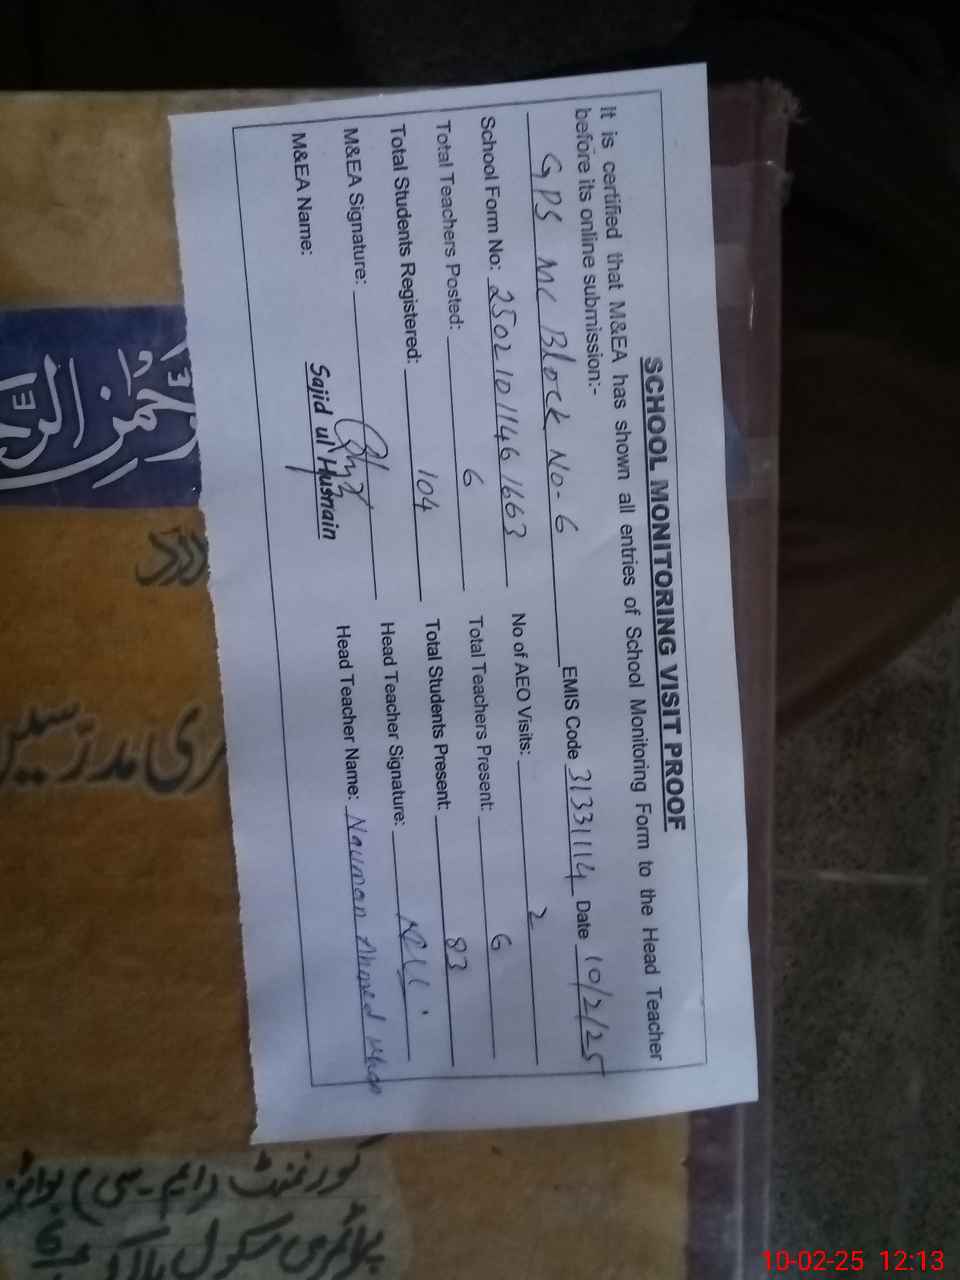 SCHOOL MONITORING VISIT PROOF
It is certified that M&EA has shown all entries of School Monitoring Form to the Head Teacher
before its online submission:-
GPS MC Block No-6 EMIS Code 31331114 Date 10/2/25
School Form No: 25021011461663 No of AEO Visits: 2
Total Teachers Posted: 6 Total Teachers Present: 6
Total Students Registered: 104 Total Students Present: 83
M&EA Signature: Head Teacher Signature:
M&EA Name: Sajid ul Husnain Head Teacher Name: Nauman Ahmed Khan
گورنمنٹ (ایم-سی) بوائز
پرائمری سکول بلاک 6
10-02-25 12:13